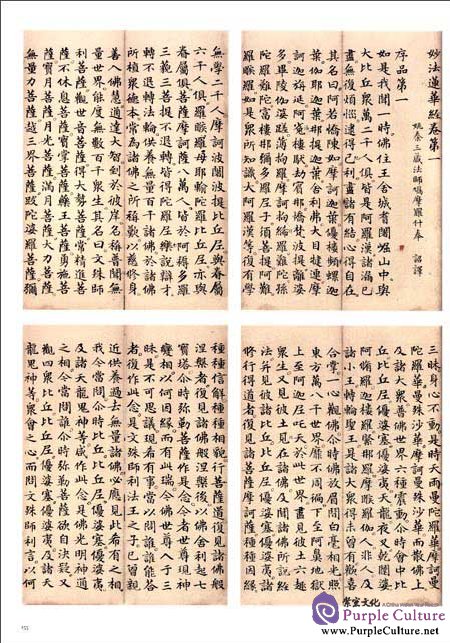 妙法蓮華經卷第一
姚秦三藏法師鳩摩羅什奉 詔譯
序品第一
如是我聞一時佛住王舍城耆闍崛山中與
大比丘眾萬二千人俱皆是阿羅漢諸漏已
盡無復煩惱逮得己利盡諸有結心得自在
其名曰阿若憍陳如摩訶迦葉優樓頻螺迦
葉伽耶迦葉那提迦葉舍利弗大目揵連摩
訶迦旃延阿㝹樓馱劫賓那憍梵波提離婆
多畢陵伽婆蹉薄拘羅摩訶拘絺羅難陀孫
陀羅難陀富樓那彌多羅尼子須菩提阿難
羅睺羅如是眾所知識大阿羅漢等復有學
無學二千人摩訶波闍波提比丘尼與眷屬
六千人俱羅睺羅母耶輸陀羅比丘尼亦與
眷屬俱菩薩摩訶薩八萬人皆於阿耨多羅
三藐三菩提不退轉皆得陀羅尼樂說辯才
轉不退轉法輪供養無量百千諸佛於諸佛
所植眾德本常為諸佛之所稱歎以慈修身
善入佛慧通達大智到於彼岸名稱普聞無
量世界能度無數百千眾生其名曰文殊師
利菩薩觀世音菩薩得大勢菩薩常精進菩
薩不休息菩薩寶掌菩薩藥王菩薩勇施菩
薩寶月菩薩月光菩薩滿月菩薩大力菩薩
無量力菩薩越三界菩薩跋陀婆羅菩薩彌
三昧身心不動是時天雨曼陀羅華摩訶曼
陀羅華曼殊沙華摩訶曼殊沙華而散佛上
及諸大眾普佛世界六種震動尒時會中比
丘比丘尼優婆塞優婆夷天龍夜叉乾闥婆
阿脩羅迦樓羅緊那羅摩睺羅伽人非人及
諸小王轉輪聖王是諸大眾得未曾有歡喜
合掌一心觀佛尒時佛放眉間白毫相光照
東方萬八千世界靡不周徧下至阿鼻地獄
上至阿迦尼吒天於此世界盡見彼土六趣
眾生又見彼土現在諸佛及聞諸佛所說經
法并見彼諸比丘比丘尼優婆塞優婆夷諸
修行得道者復見諸菩薩摩訶薩種種因緣
種種信解種種相貌行菩薩道復見諸佛般
涅槃者復見諸佛般涅槃後以佛舍利起七
寶塔尒時彌勒菩薩作是念今者世尊現神
變相以何因緣而有此瑞今佛世尊入于三
昧是不可思議現希有事當以問誰誰能答
者復作此念是文殊師利法王之子已曾親
近供養過去無量諸佛必應見此希有之相
我今當問尒時比丘比丘尼優婆塞優婆夷
及諸天龍鬼神等咸作此念是佛光明神通
之相今當問誰尒時彌勒菩薩欲自決疑又
觀四眾比丘比丘尼優婆塞優婆夷及諸天
龍鬼神等眾會之心而問文殊師利言以何
紫室文化
Purple Culture
www.PurpleCulture.net